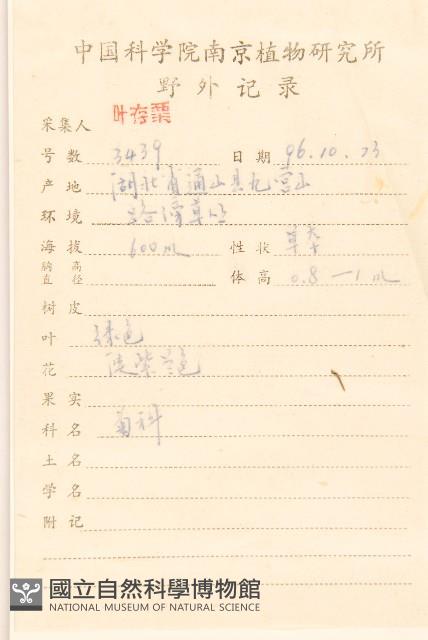 中国科学院南京植物研究所
野外记录
采集人 叶存粟
号数 3439 日期 96.10.23
产地 湖北省通山县九宫山
环境 路滂草丛
海拔 600m 性状 草本
胸高直径 体高 0.8—1m
树皮
叶 绿色
花 淡紫兰色
果实
科名 菊科
土名
学名
附记
國立自然科學博物館
NATIONAL MUSEUM OF NATURAL SCIENCE